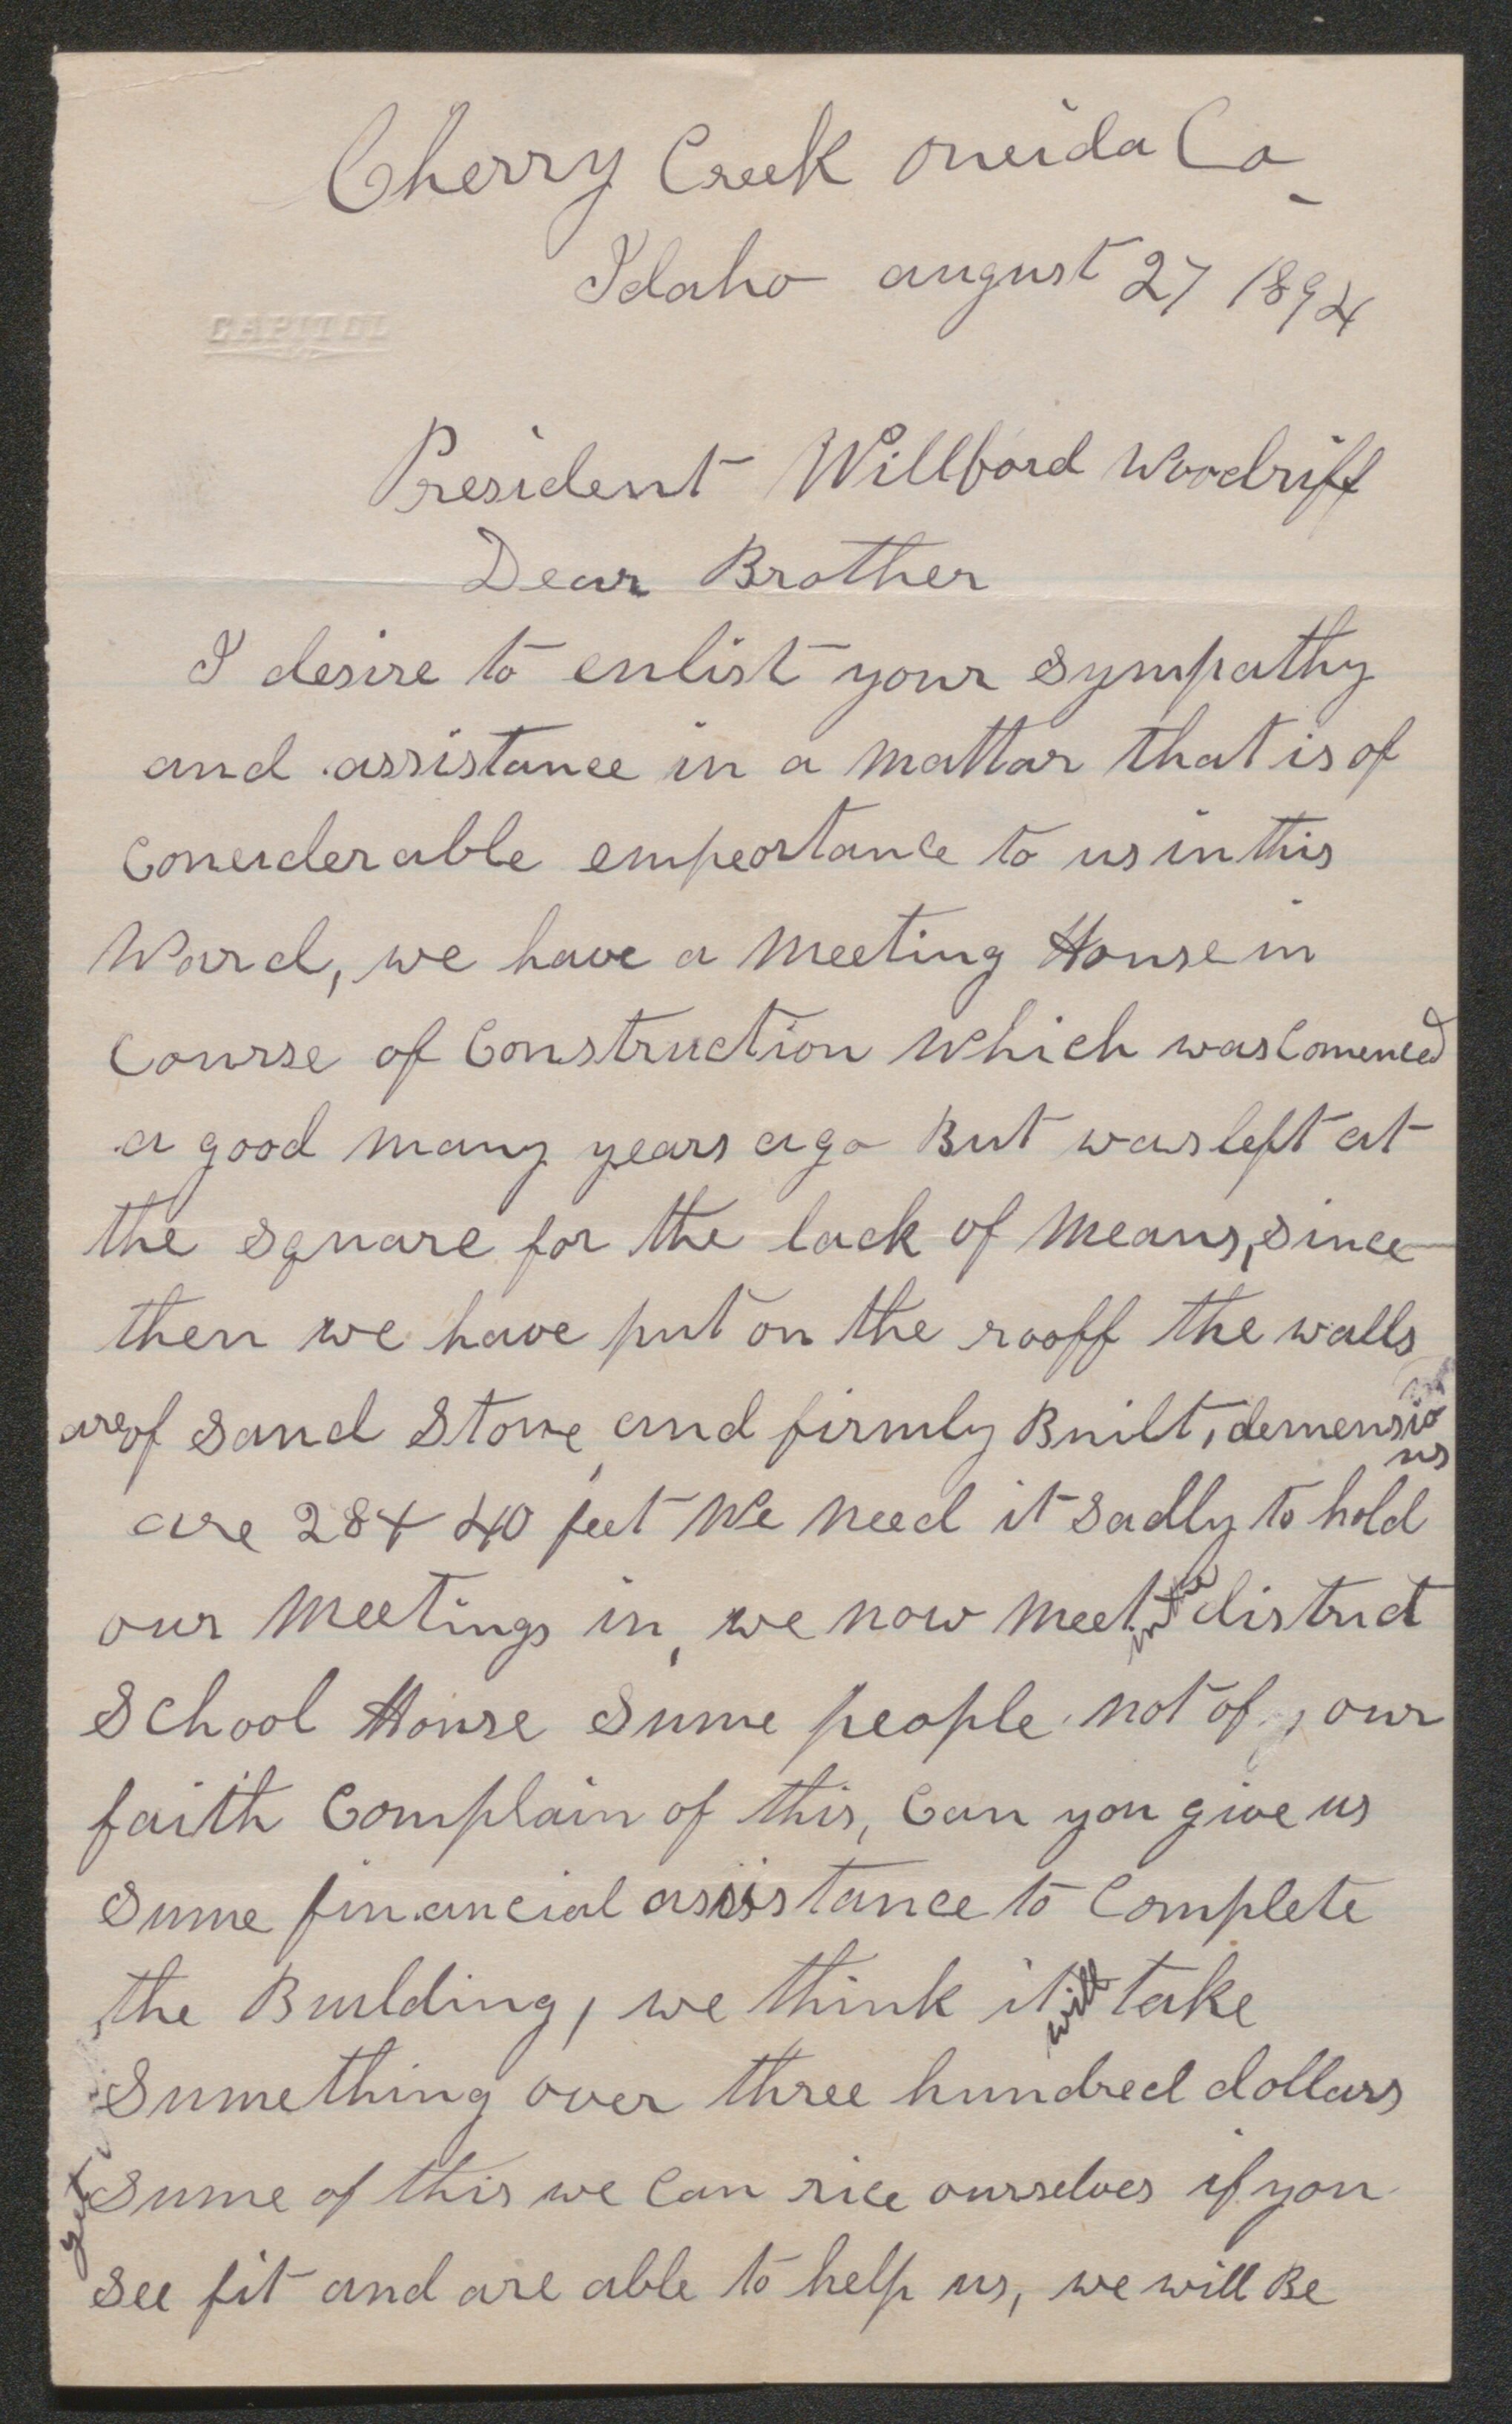 Cherry Creek Oneida Co
Idaho august 27 1894
CAPITOL
President Willford Woodriff
Dear Brother
I desire to enlist your sympathy
and assistance in a mattar that is of
Considerable empeortance to us in this
Ward, we have a meeting House in
Course of Construction which was Comenced
a good many years ago But was left at
the square for the lack of means, since
then we have put on the rooff the walls
are of Sand Stone, and firmly Built, demensions
are 28 + 40 feet We need it Sadly to hold
our meetings in, we now meet in the district
School House Sume people not of our
faith Complain of this, Can you give us
Sume financial assistance to Complete
the Building, we think it will take
Sumething over three hundred dollars
yet Sume of this we Can rice ourselves if you
See fit and are able to help us, we will Be